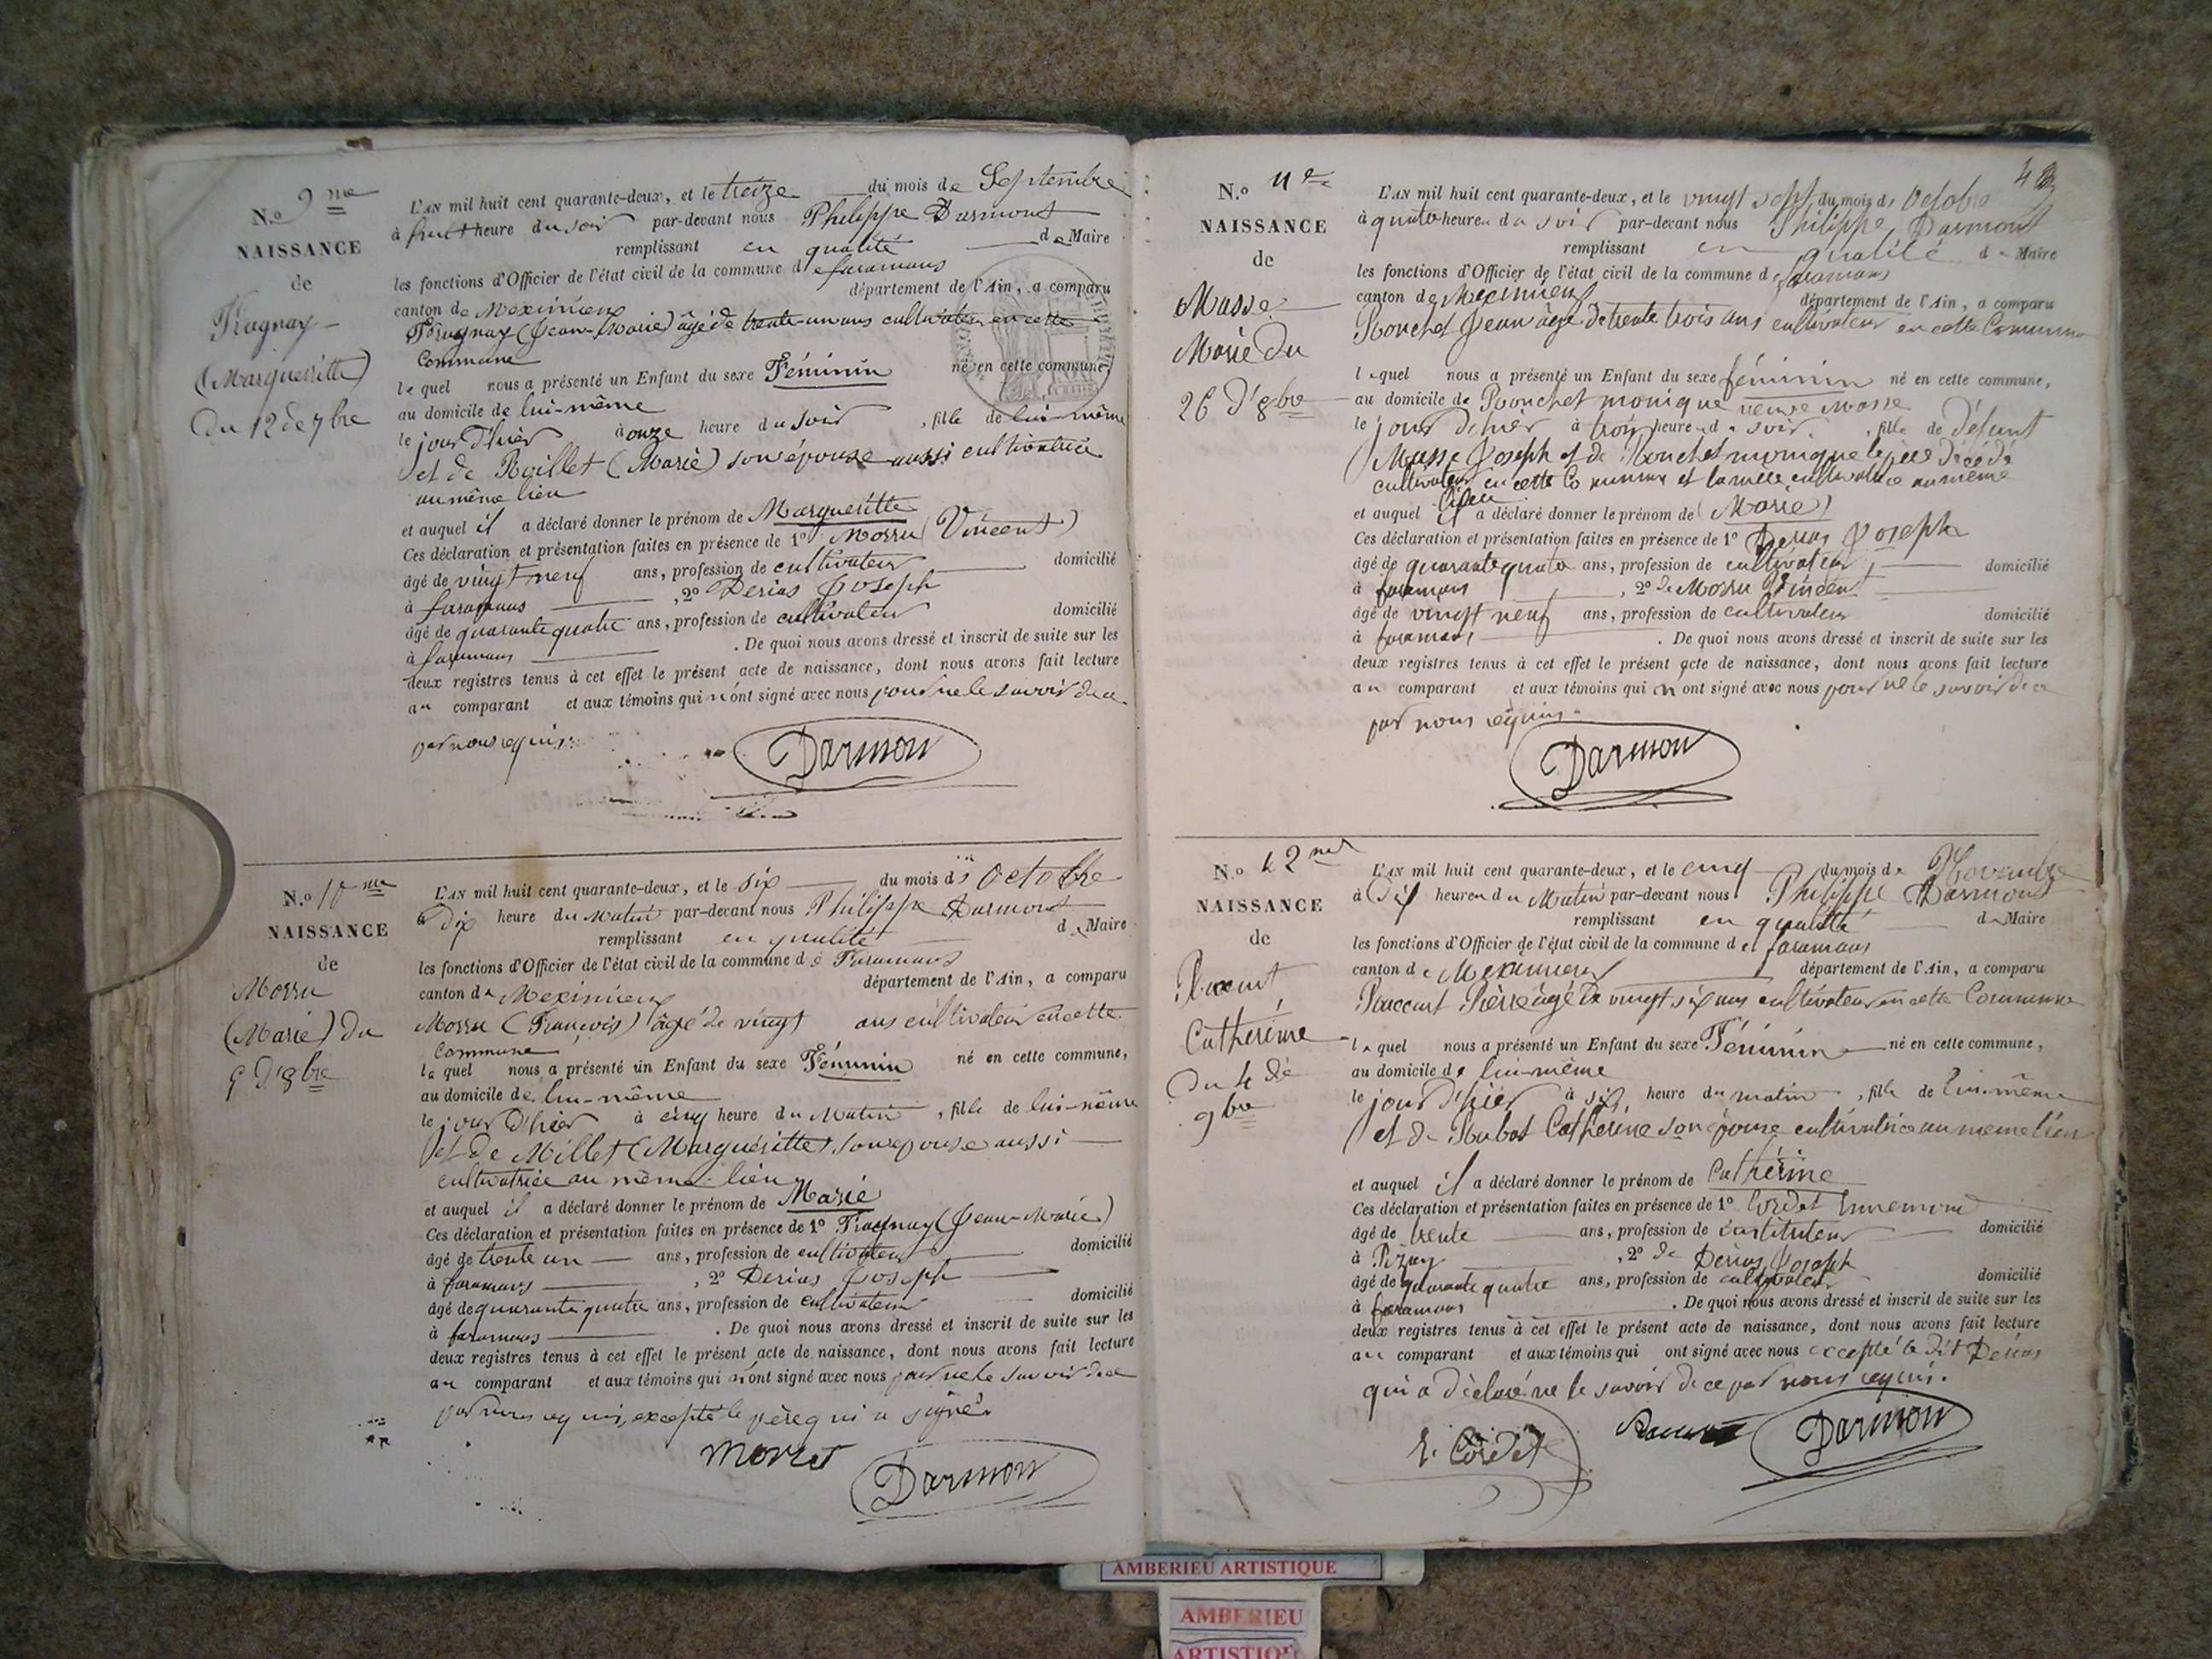 N.o 9 me
NAISSANCE
de
(Margueritte)
Du 12 de 7bre
L'AN mil huit cent quarante-deux, et le treize du mois de Septembre
à huit heure du soir par-devant nous Philippe Darmont
remplissant en qualité de Maire
les fonctions d'Officier de l'état civil de la commune de faramans
canton de Meximieux département de l'Ain, a comparu
(Jean-Marie) âgé de trente un ans cultivateur en cette
Commune
lequel nous a présenté un Enfant du sexe Féminin né en cette commune,
au domicile de lui-même
le jour d'hier à onze heure du soir, fille de lui-même
et de Roillet (Marie) son épouse aussi cultivatrice
au même lieu
et auquel il a déclaré donner le prénom de Marguéritte
Ces déclaration et présentation faites en présence de 1o Morru (Vincent)
âgé de vingt neuf ans, profession de cultivateur domicilié
à faramans, 2o Derias Joseph
âgé de quarante quatre ans, profession de cultivateur domicilié
à faramans. De quoi nous avons dressé et inscrit de suite sur les
deux registres tenus à cet effet le présent acte de naissance, dont nous avons fait lecture
au comparant et aux témoins qui n'ont signé avec nous pour ne le savoir de ce
par nous requis.
Darmon
N.o 10 me
NAISSANCE
de
Morru
(Marie) du
5 d'8bre
L'AN mil huit cent quarante-deux, et le six du mois d' Octobre
à Dix heure du Matin par-devant nous Philippe Darmont
remplissant en qualité de Maire
les fonctions d'Officier de l'état civil de la commune de Faramans
canton de Meximieux département de l'Ain, a comparu
Morru (François) âgé de vingt ans cultivateur en cette
Commune
lequel nous a présenté un Enfant du sexe Féminin né en cette commune,
au domicile de lui-même
le jour d'hier à cinq heure du Matin, fille de lui-même
et de Millet (Marguéritte) son epouse aussi
cultivatrice au même lieu
et auquel il a déclaré donner le prénom de Marie
Ces déclaration et présentation faites en présence de 1o (Jean-Marie)
âgé de trente un ans, profession de cultivateur domicilié
à faramans, 2o Derias Joseph
âgé de quarante quatre ans, profession de cultivateur domicilié
à faramans. De quoi nous avons dressé et inscrit de suite sur les
deux registres tenus à cet effet le présent acte de naissance, dont nous avons fait lecture
au comparant et aux témoins qui n'ont signé avec nous pour ne le savoir de ce
par nous requis, excepté le père qui a signé.
Darmon
N.o 11 e
NAISSANCE
de
Masse
Marie du
26 d'8bre
L'AN mil huit cent quarante-deux, et le vingt sept du mois d' Octobre
à quatre heure du soir par-devant nous Philippe Darmont
remplissant en qualité de Maire
les fonctions d'Officier de l'état civil de la commune de faramans
canton de Meximieux département de l'Ain, a comparu
Ponchet Jean âgé de trente trois ans cultivateur en cette Commune
lequel nous a présenté un Enfant du sexe féminin né en cette commune,
au domicile de Ponchet monique veuve Masse
le jour d'hier à trois heure du soir, fille de défunt
Masse Joseph et de Ponchet monique le père décédé
cultivateur en cette Commune et la mère cultivatrice au même
lieu
et auquel il a déclaré donner le prénom de (Marie)
Ces déclaration et présentation faites en présence de 1o Derias Joseph
âgé de quarante quatre ans, profession de cultivateur domicilié
à faramans, 2o de Morru Vincent
âgé de vingt neuf ans, profession de cultivateur domicilié
à faramans. De quoi nous avons dressé et inscrit de suite sur les
deux registres tenus à cet effet le présent acte de naissance, dont nous avons fait lecture
au comparant et aux témoins qui n'ont signé avec nous pour ne le savoir de ce
par nous requis.
Darmon
N.o 12 me
NAISSANCE
de
Catherine
Du 4 de
9bre
L'AN mil huit cent quarante-deux, et le cinq du mois de Novembre
à Dix heure du Matin par-devant nous Philippe Darmont
remplissant en qualité de Maire
les fonctions d'Officier de l'état civil de la commune de faramans
canton de Meximieux département de l'Ain, a comparu
Pierre âgé de vingt six ans cultivateur en cette Commune
lequel nous a présenté un Enfant du sexe Féminin né en cette commune,
au domicile de lui-même
le jour d'hier à six heure du matin, fille de lui-même
et de Catherine son épouse cultivatrice au même lieu
et auquel il a déclaré donner le prénom de Cathérine
Ces déclaration et présentation faites en présence de 1o Cordet Ennemond
âgé de trente ans, profession de instituteur domicilié
à Pizay, 2o de Derias Joseph
âgé de quarante quatre ans, profession de cultivateur domicilié
à faramans. De quoi nous avons dressé et inscrit de suite sur les
deux registres tenus à cet effet le présent acte de naissance, dont nous avons fait lecture
au comparant et aux témoins qui ont signé avec nous excepté le dit Derias
qui a déclaré ne le savoir de ce par nous requis.
E. Cordet
Darmon
AMBERIEU ARTISTIQUE
AMBERIEU
ARTISTIQUE